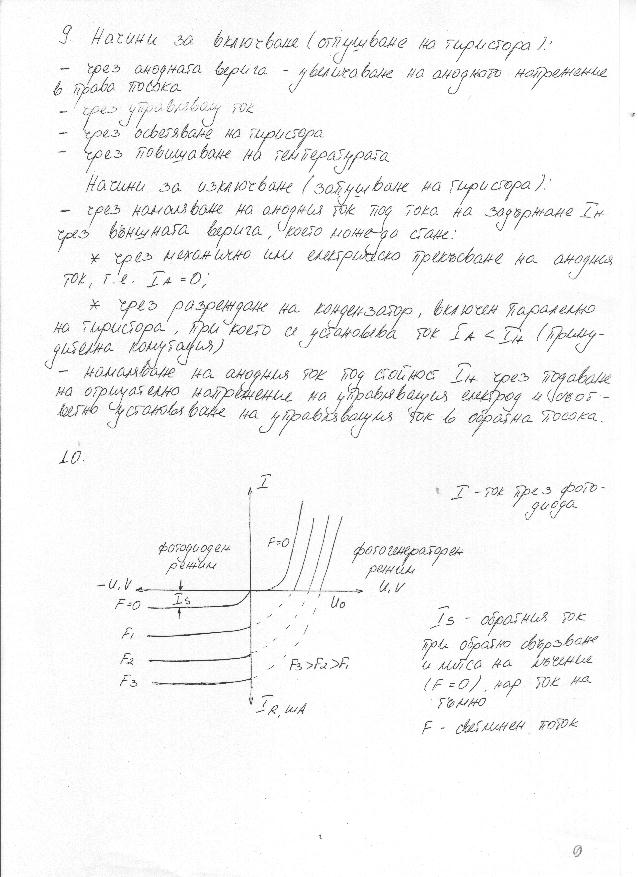 9. Начини за включване (отпушване на тиристора):
- чрез анодната верига - увеличаване на анодното напрежение
в права посока
- чрез управляващ ток
- чрез осветяване на тиристора
- чрез повишаване на температурата
Начини за изключване (запушване на тиристора):
- чрез намаляване на анодния ток под тока на задържане Iн
чрез външната верига, което може да стане:
* чрез механично или електрическо прекъсване на анодния
ток, т.е. IA = 0;
* чрез разреждане на кондензатор, включен паралелно
на тиристора, при което се установява ток IA < Iн (прину-
дителна комутация)
- намаляване на анодния ток под стойност Iн чрез подаване
на отрицателно напрежение на управляващия електрод и съот-
ветно установяване на управляващия ток в обратна посока.
10.
I
I - ток през фото-
диода
F=0
фотодиоден
режим
фотогенераторен
режим
-U,V
U,V
Is
Uo
F=0
F1
F2
F3
F3>F2>F1
IR, mA
Is - обратния ток
при обратно свързване
и липса на лъчение
(F=0), нар ток на
тъмно
F - светлинен поток
9